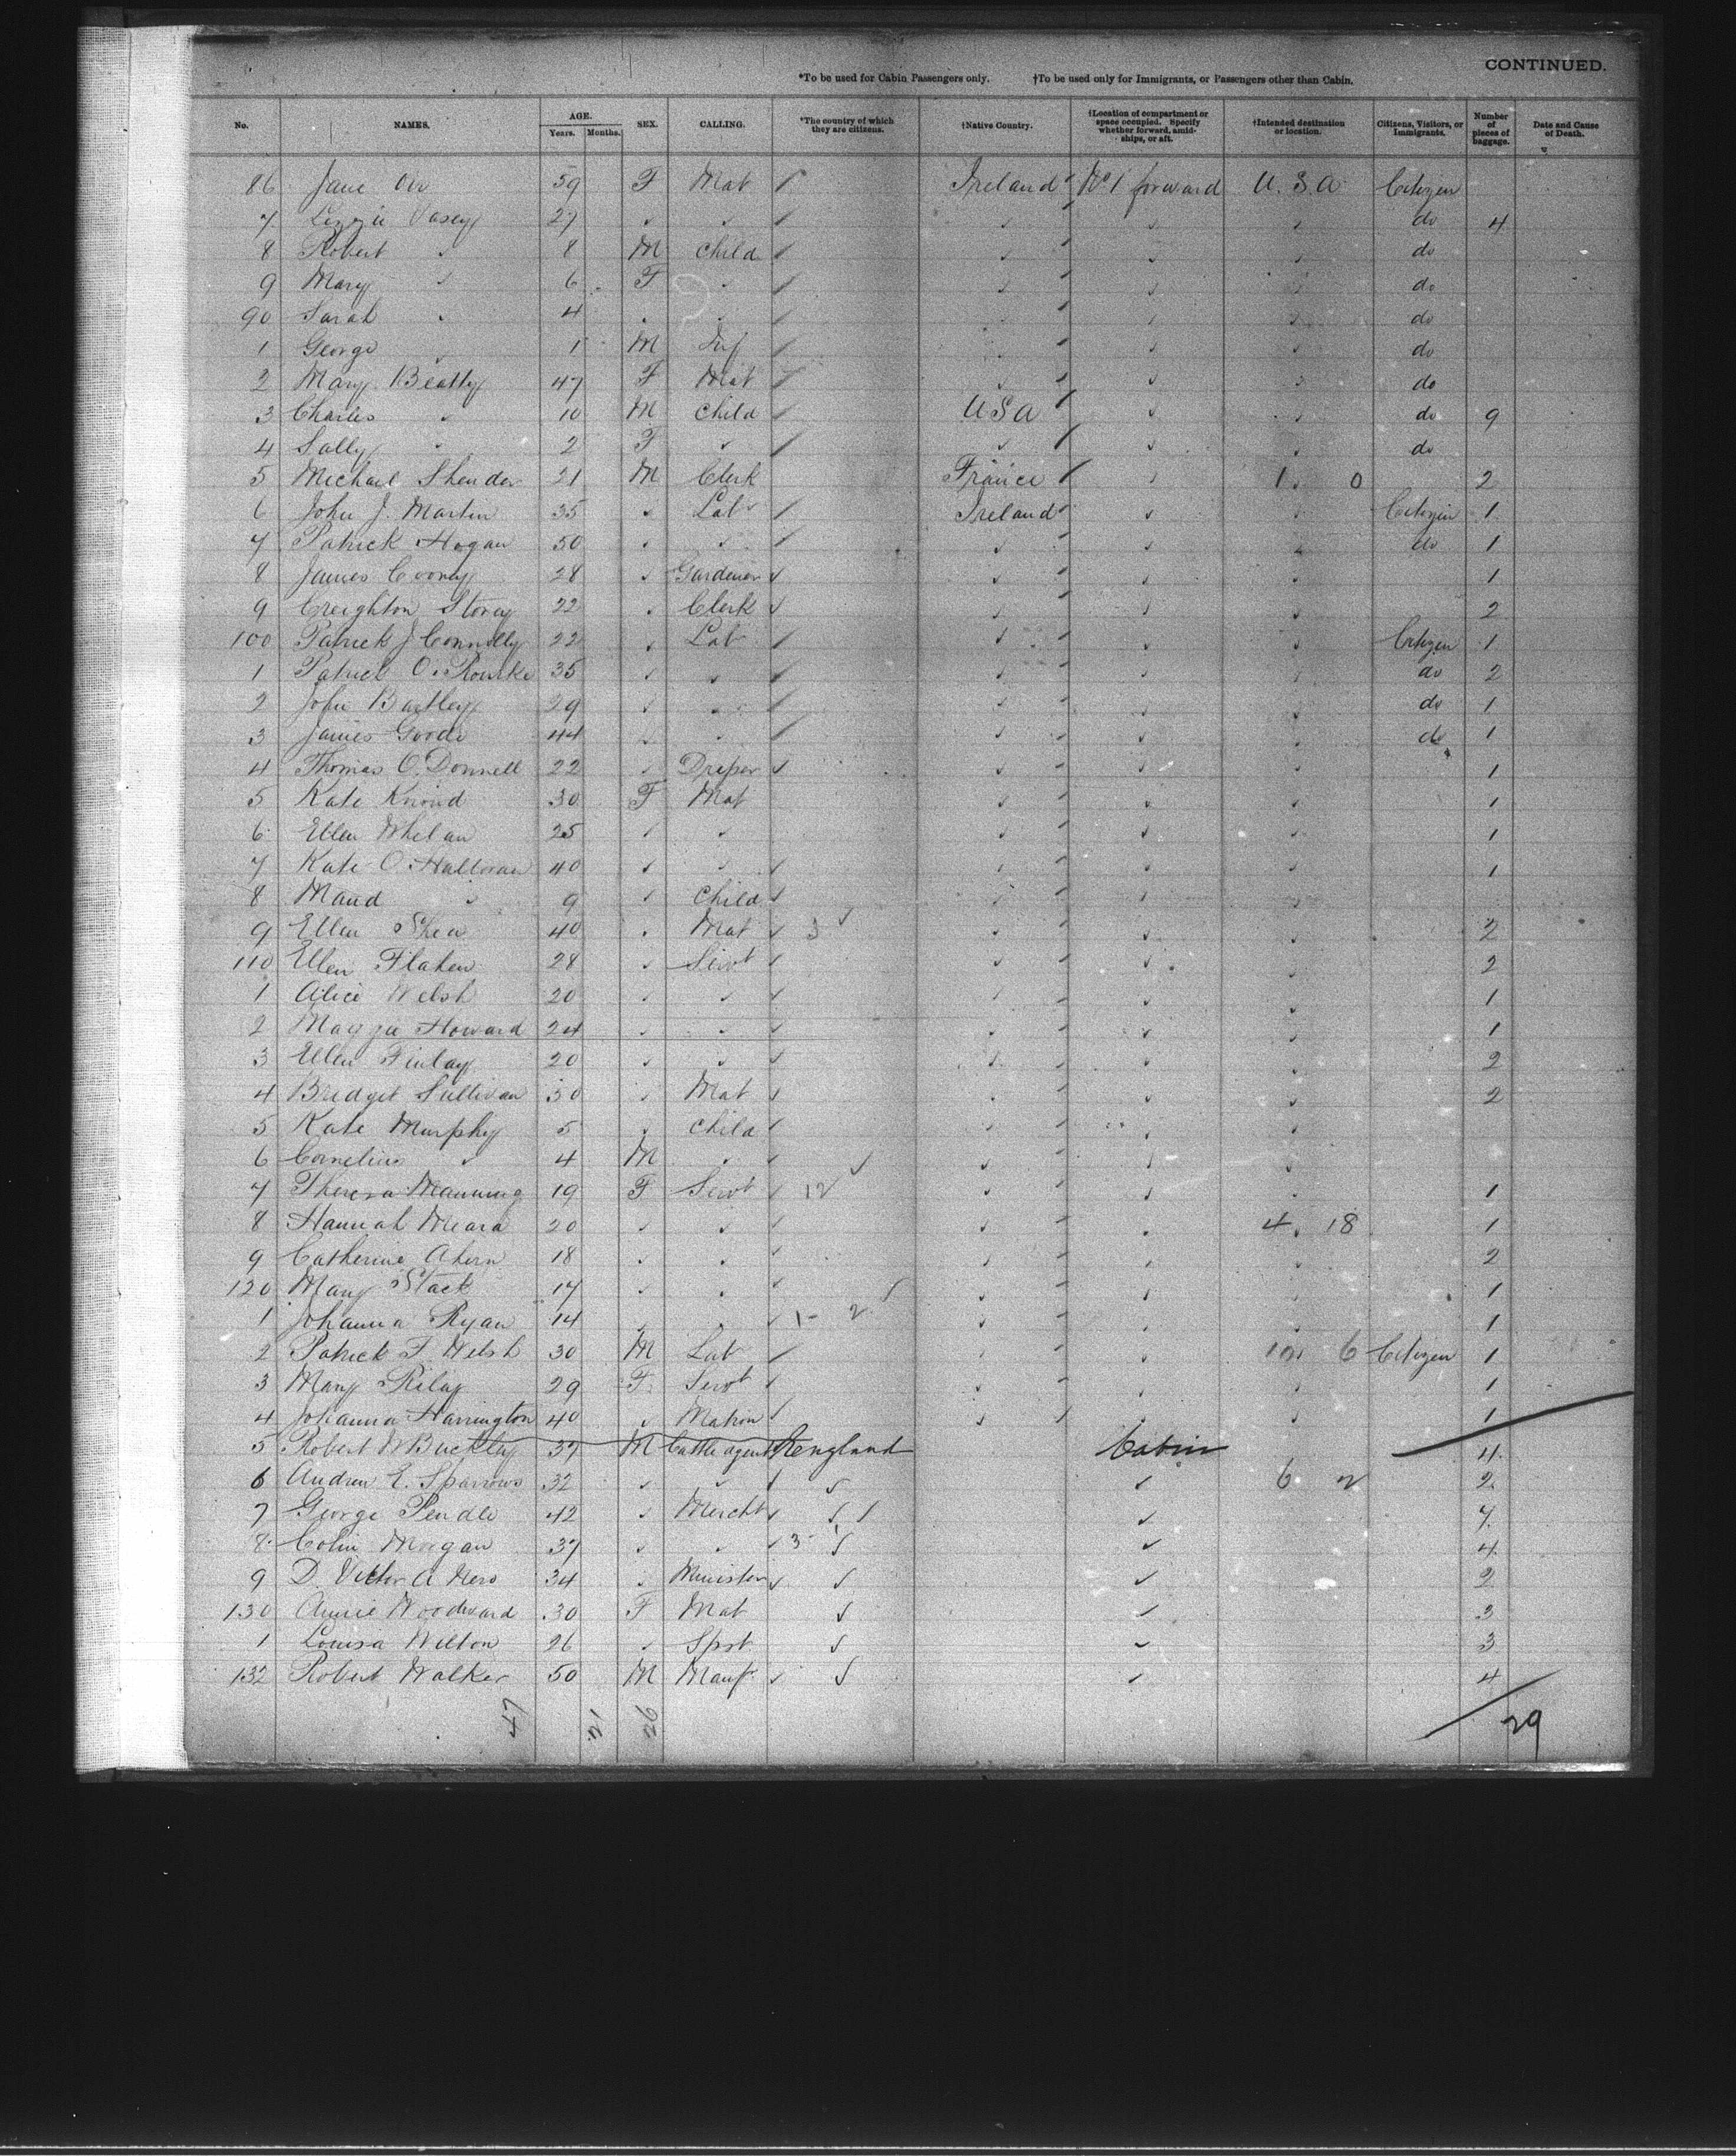 CONTINUED.
*To be used for Cabin Passengers only. †To be used only for Immigrants, or Passengers other than Cabin.
No. NAMES. AGE. Years. Months. SEX. CALLING. *The country of which they are citizens. †Native Country. †Location of compartment or space occupied. Specify whether forward, amidships, or aft. †Intended destination or location. Citizens, Visitors, or Immigrants. Number of pieces of baggage. Date and Cause of Death.
86 Jane Orr 59 F Mat Ireland No 1 forward U.S.A Citizen
7 Lizzie Vasey 27 do 4
8 Robert 8 M Child do
9 Mary 6 F do
90 Sarah 4 do
1 George 1 M Inf do
2 Mary Beatty 47 F Mat do
3 Charles 10 M Child USA do 9
4 Sally 2 F do
5 Michael 21 M Clerk France 1 0 2
6 John J. Martin 35 Lab Ireland Citizen 1
7 Patrick Hogan 50 do 1
8 James Cooney 28 Gardener 1
9 Creighton Storey 22 Clerk 2
100 Patrick J Connolly 22 Lab Citizen 1
1 Patrick O'Rourke 35 do 2
2 John Bartley 29 do 1
3 James Goode 44 do 1
4 Thomas O'Donnell 22 Draper 1
5 Kate 30 F Mat 1
6 Ellen Whelan 25 1
7 Kate O'Halloran 40 1
8 Maud 9 Child
9 Ellen Shea 40 Mat 3 2
110 Ellen Flahen 28 Servt 2
1 Alice Welsh 20 1
2 Maggie Howard 24 1
3 Ellen Finlay 20 2
4 Bridget Sullivan 30 Mat 2
5 Kate Murphy 5 Child
6 Cornelius 4 M
7 Theresa Manning 19 F Servt 12 1
8 Hannah Meara 20 4 18 1
9 Catherine Ahern 18 2
120 Mary Stack 17 1
1 Johanna Ryan 14 1 - 2 1
2 Patrick F Welsh 30 M Lab 10 6 Citizen 1
3 Mary Riley 29 F Servt 1
4 Johanna Harrington 40 Matron 1
5 Robert W Buckley 37 M Cattle agent England Cabin 4
6 Andrew E. Sparrows 32 6 2 2
7 George Pendle 42 Mercht 7
8 Colin Morgan 37 3 4
9 D. Victor A 34 Minister 2
130 Annie Woodward 30 F Mat 3
1 Louisa Wilton 26 Spst 3
132 Robert Walker 50 M Manf 4
47 12 26 29